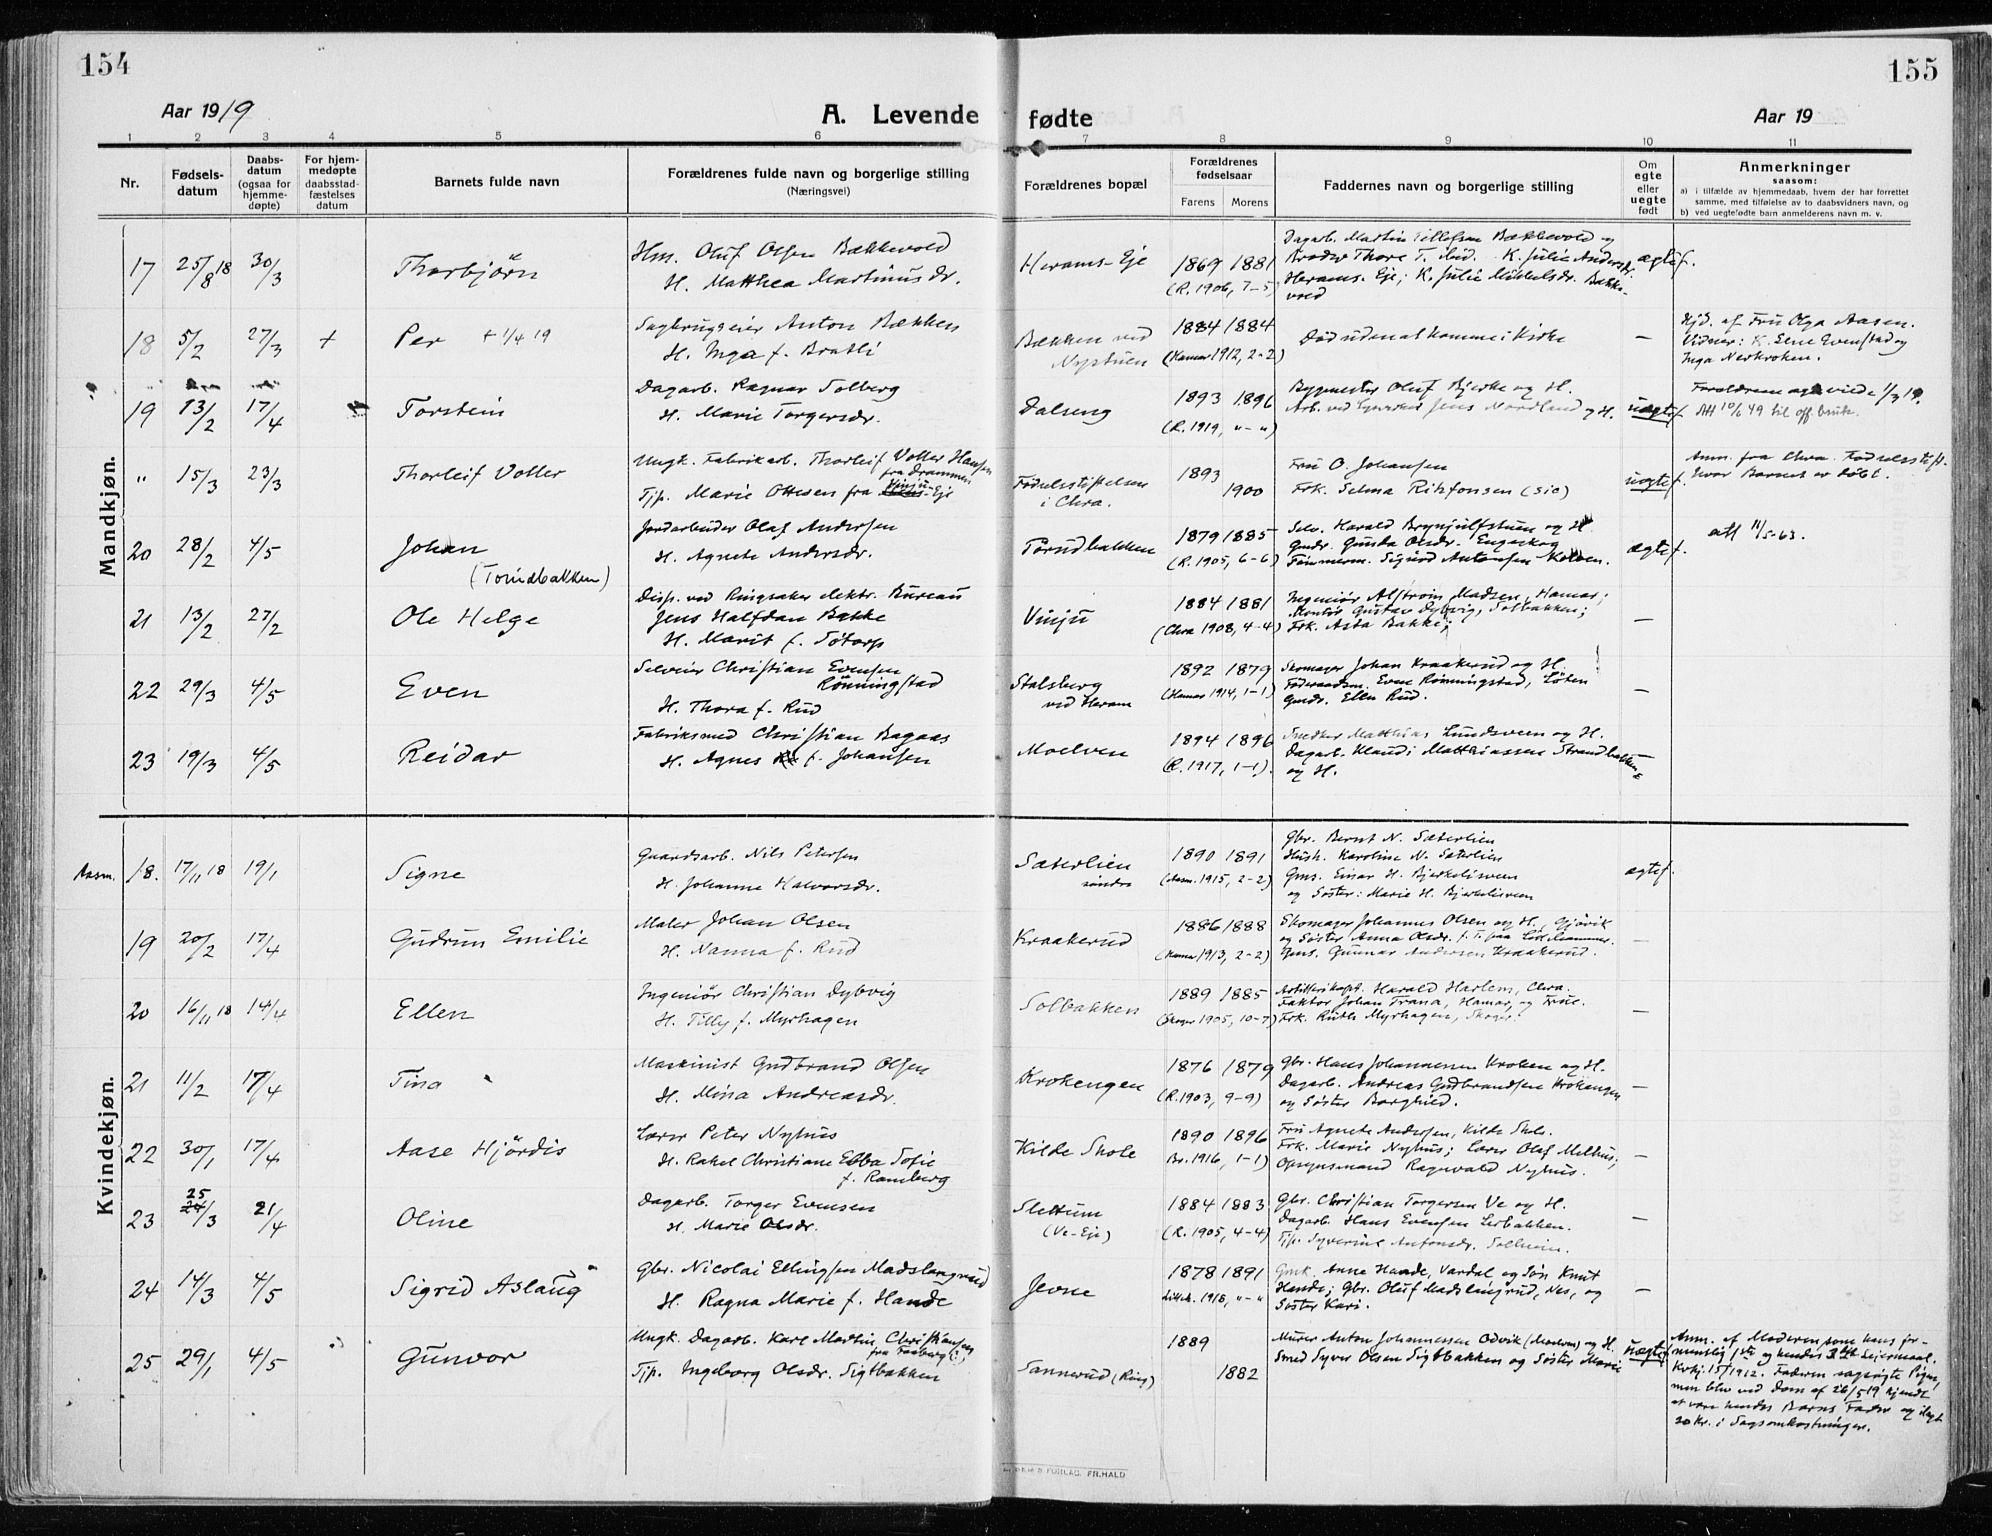 154
155
Aar 1919
A. Levende fødte
Aar 19
1 2 3 4 5 6 7 8 9 10 11
Nr.
Fødsels-
datum
Daabs-
datum
(ogsaa for
hjemme-
døpte)
For hjem-
medøpte
daabsstad-
fæstelses
datum
Barnets fulde navn
Forældrenes fulde navn og borgerlige stilling
(Næringsvei)
Forældrenes bopæl
Forældrenes
fødselsaar
Farens Morens
Faddernes navn og borgerlige stilling
Om
egte
eller
uegte
født
Anmerkninger
saasom:
a) i tilfælde av hjemmedaab, hvem der har forrettet
samme, med tilføielse av to daabsvidners navn, og
b) ved uegtefødte barn anmelderens navn m. v.
Mandkjøn.
17 25/8 18 30/3 Thorbjörn
Hm. Oluf Olsen Bækkevold
H. Matthea Martinusdr.
Herams-Eje 1869 1881
(R. 1906, 7-5)
Dagarb. Martin Tellefsen Bækkevold og
Herams-Eje; K. Julie Mikkelsdr. Bække-
vold
ægtef.
18 5/2 27/3 + Per + 1/4 19
Sagbrugseier Anton Bækken
H. Inga f. Bratli
Bækken ved
Nystuen
1884 1884
(Hamar 1912, 2-2)
Död uden at komme i Kirke
—
Hjd. af Fru Olga Aasen.
Vidner: K. Elene Evenstad og
Inga Nerkroken.
19 13/2 17/4 Torstein
Dagarb. Ragnar Solberg
H. Marie Torgersdr.
Dalseng 1893 1896
(R. 1919, „ - „)
Bygmester Oluf Bjerke og H.
Jens Nordland og H.
uægtef.
Forældrene ægteviede 1/3 19.
Att 10/6 49 til off. bruk.
" 15/3 23/3 Thorleif Voller
Ungk. Fabrikarb. Thorleif Voller Hansen
fra Drammen
Tjp. Marie Ottesen fra Vinju-Eje
Födselsstiftelsen
i Chra.
1893
1900
Fru O. Johansen
Frk. Selma Rikfonsen (sic)
uægtef.
Anm. fra Chra. Födselsstift.
hvor Barnet er døbt.
20 28/2 4/5 Johan
(Torudbakken)
Jordarbeider Olaf Andersen
H. Agnete Andersdr.
Torudbakken 1879 1885
(R. 1905, 6-6)
Selv. Harald Brynjulfstuen og H.
Gmdr. Gunda Olsdr. Engeskog
Tömmerm. Sigurd Antonsen Kolven.
ægtef.
att 11/5-63.
21 13/2 27/2 Ole Helge
Disp. ved Ringsaker elektr. Bureau
Jens Halfdan Bakke
H. Marit f. Sötorp
Vinju 1884 1881
(Chra 1908, 4-4)
Ingeniör Alström Madsen, Hamar;
Kontor. Gustav Dybvig, Solbakken;
Frk. Asta Bakke;
—
22 29/3 4/5 Even
Selveier Christian Evensen
Rönningstad
H. Thora f. Rud
Stalsberg
ved Heram
1892 1879
(Hamar 1914, 1-1)
Skomager Johan Kraakerud og H.
Föderaadsm. Even Rönningstad, Löten
Gmdr. Ellen Rud.
—
23 19/3 4/5 Reidar
Fabriksmed Christian Bagaas
H. Agnes f. Johansen
Moelven 1894 1896
(R. 1917, 1-1).
Snedker Matthias Lundsveen og H.
Dagarb. Klaudi Matthiassen Strandbakken
og H.
—
Kvindekjøn.
Aasm. 18. 17/11 18 19/1 Signe
Gaardsarb. Nils Petersen
H. Johanne Halvorsdr.
Sæterlien
söndre
1890 1891
(Aasm. 1915, 2-2)
Gbr. Bernt N. Sæterlien
Hush. Karoline N. Sæterlien
Gms. Einar H. Bjerkelisveen
og Söster: Marie H. Bjerkelisveen
ægtef.
19 20/2 17/4 Gudrun Emilie
Maler Johan Olsen
H. Nanna f. Rud
Kraakerud 1886 1888
(Hamar 1913, 2-2)
Skomager Johannes Olsen og H., Gjövik
og Söster Anna Olsdr. f. T. paa Lillehammer.
Gms. Gunnar Andersen Kraakerud.
—
20 16/11 18 14/4 Ellen
Ingeniör Christian Dybvig
H. Tilly f. Myrhagen
Solbakken 1889 1885
(Skoger 1905, 10-7)
Artillerikapt. Harald Harlem, Chra.
Faktor Johan Trana, Hamar, og Frue.
Frk. Ruth Myrhagen, Skoger.
—
21 11/2 17/4 Tina
Maskinist Gudbrand Olsen
H. Mina Andreasdr.
Krokengen 1876 1879
(R. 1903, 9-9)
Gbr. Hans Johannessen Kroken og H.
Dagarb. Andreas Gudbrandsen Krokengen
og Söster Borghild.
—
22 30/1 17/4 Aase Hjördis
Lærer Peter Nyhus
H. Rakel Christiane Ebba Sofie
f. Ramberg
Kilde Skole 1890 1896
Br. 1916, 1-1)
Fru Agnete Andersen, Kilde Skole.
Frk. Marie Nyhus; Lærer Olaf Melhus;
Opsynsmand Ragnvald Nyhus.
—
23 25/3 21/4 Oline
Dagarb. Torger Evensen
H. Marie Olsdr.
Slettum
(Ve-Eje)
1884 1883
(R. 1905, 4-4)
Gbr. Christian Torgersen Ve og H.
Dagarb. Hans Evensen Lerbakken.
Tjp. Syverine Antonsdr. Solheim.
—
24 14/3 4/5 Sigrid Aslaug
Gbr. Nicolai Ellingsen Madslangrud
H. Ragna Marie f. Hande
Jevne 1878 1891
Lilleh. 1918, „ - „
Gmk. Anne Hande, Vardal og Søn Knut
Hande; Gbr. Oluf Madslangrud, Nes, og
Söster Kari.
—
25 29/1 4/5 Gunvor
Ungk. Dagarb. Karl Martin Christiansen
fra Faaberg
Tjp. Ingeborg Olsdr. Sigtbakken
Sannerud (Ring)
1889
1882
Murer Anton Johannessen Odvik (Moelven) og H.
Smed Syver Olsen Sigtbakken og Söster Marie
uægtef.
Anm. af Moderen som hans for-
mentlig 1ste og hendes Leiermaal.
Kvkj. 15/ 1912. Faderen sagsögte Pigen,
men blev ved Dom af 26/5 19 kjendt
at være hendes Barns Fader og ilagt
20 Kr. i Sagsomkostninger.
FORLAG. FR. HALD